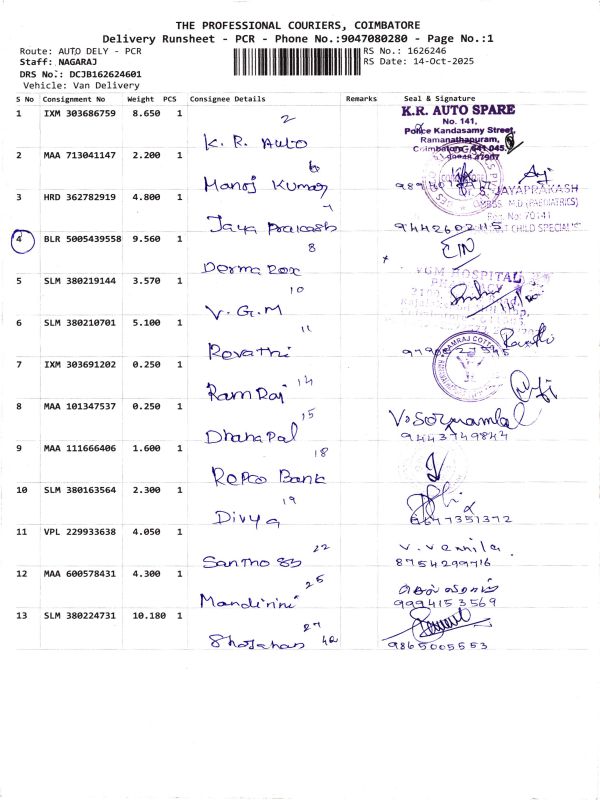 THE PROFESSIONAL COURIERS, COIMBATORE
Delivery Runsheet - PCR - Phone No.:9047080280 - Page No.:1
Route: AUTO DELY - PCR
RS No.: 1626246
Staff: NAGARAJ
RS Date: 14-Oct-2025
DRS No.: DCJB162624601
Vehicle: Van Delivery
S No Consignment No Weight PCS Consignee Details Remarks Seal & Signature
1 IXM 303686759 8.650 1
2
K. R. Auto
K.R. AUTO SPARE
No. 141,
Police Kandasamy Street,
Ramanathapuram,
Coimbatore - 641 045.
2 MAA 713041147 2.200 1
6
Manoj Kumar
3 HRD 362782919 4.800 1
7
Jaya Prakash
JAYAPRAKASH
MBBS. M.D.(PAEDIATRICS)
Reg. No: 70141
CHILD SPECIALIST
9442602115
4 BLR 5005439558 9.560 1
8
Derma Rox
5 SLM 380219144 3.570 1
10
V. G. M
VGM HOSPITAL
6 SLM 380210701 5.100 1
11
Revathi
7 IXM 303691202 0.250 1
14
Ram Raj
RAMRAJ COTTON
8 MAA 101347537 0.250 1
15
Dhanapal
9443749844
9 MAA 111666406 1.600 1
18
Repco Bank
10 SLM 380163564 2.300 1
19
Divya
11 VPL 229933638 4.050 1
22
V. Vennila
8754299716
12 MAA 600578431 4.300 1
25
9994153569
13 SLM 380224731 10.180 1
27
9865005553